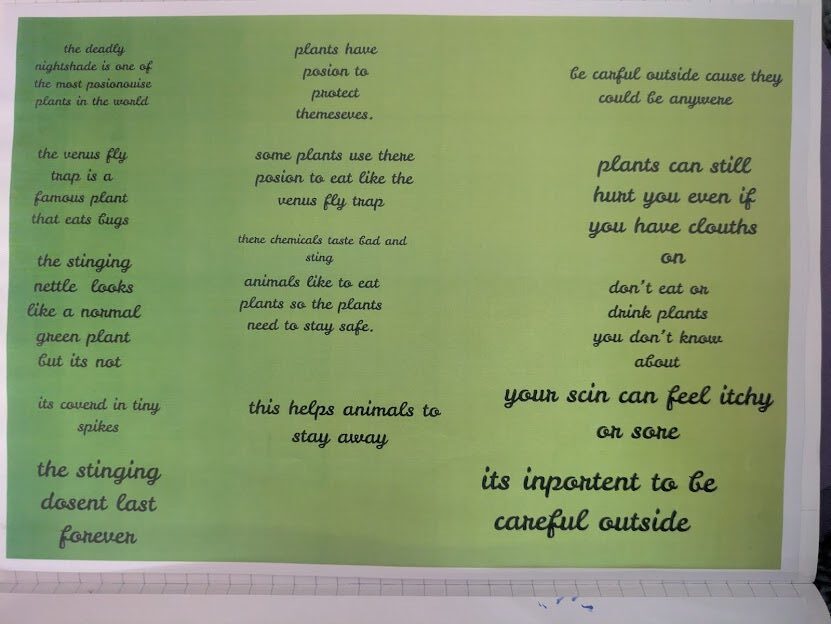 the deadly
nightshade is one of
the most posionouise
plants in the world
the venus fly
trap is a
famous plant
that eats bugs
the stinging
nettle looks
like a normal
green plant
but its not
its coverd in tiny
spikes
the stinging
dosent last
forever
plants have
posion to
protect
themeseves.
some plants use there
posion to eat like the
venus fly trap
there chemicals taste bad and
sting
animals like to eat
plants so the plants
need to stay safe.
this helps animals to
stay away
be carful outside cause they
could be anywere
plants can still
hurt you even if
you have clouths
on
don't eat or
drink plants
you don't know
about
your scin can feel itchy
or sore
its inportent to be
careful outside